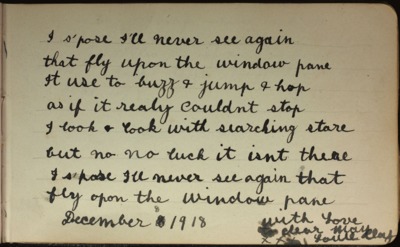 I s'pose I'll never see again
that fly upon the window pane
It use to buzz & jump & hop
as if it realy couldnt stop
I look & look with searching stare
but no no luck it isnt there
I s'pose I'll never see again that
fly opon the window pane
December 8 1918
with love
dear May
xxx Louie